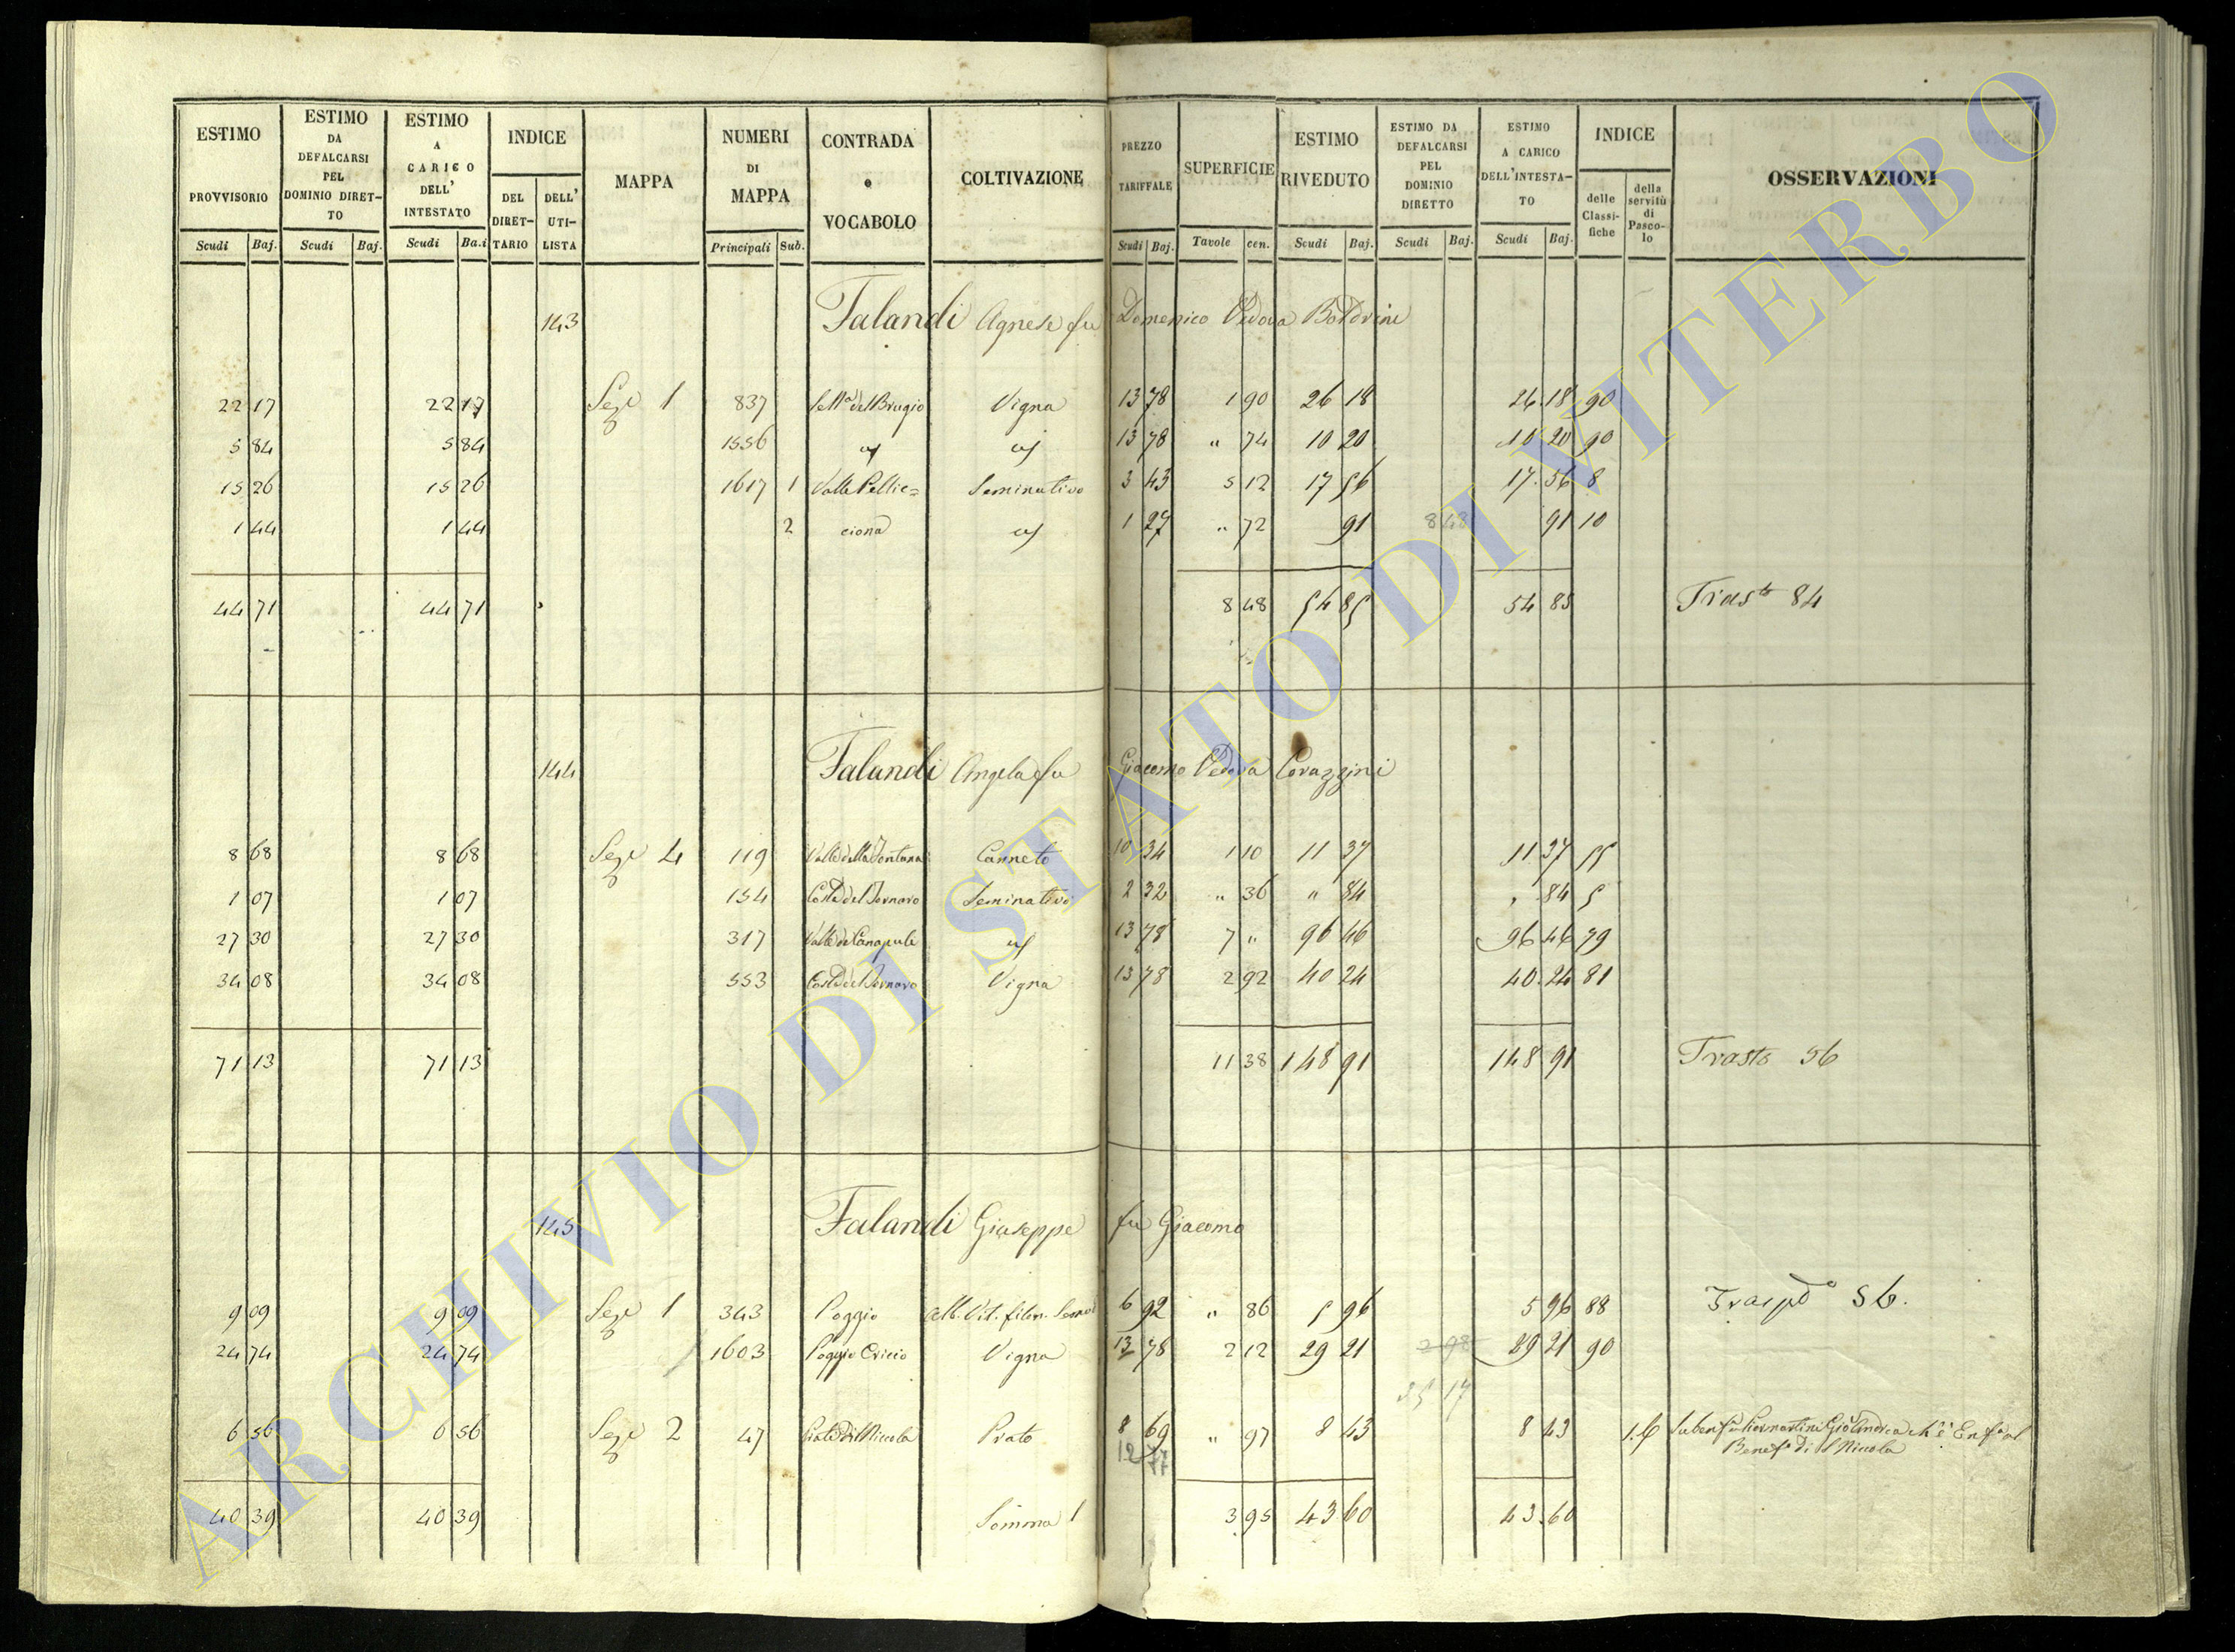 ESTIMO PROVVISORIO Scudi Baj. | ESTIMO DA DEFALCARSI PEL DOMINIO DIRET-TO Scudi Baj. | ESTIMO A CARICO DELL' INTESTATO Scudi Ba.i | INDICE DEL DIRET-TARIO | DELL' UTI-LISTA | MAPPA | NUMERI DI MAPPA Principali Sub. | CONTRADA o VOCABOLO | COLTIVAZIONE | PREZZO TARIFFALE Scudi Baj. | SUPERFICIE Tavole cen. | ESTIMO RIVEDUTO Scudi Baj. | ESTIMO DA DEFALCARSI PEL DOMINIO DIRETTO Scudi Baj. | ESTIMO A CARICO DELL'INTESTA-TO Scudi Baj. | INDICE delle Classi-fiche | della servitù di Pasco-lo | OSSERVAZIONI
143 Falandi Agnese fu Domenico Vedova Boldrini
22 17 22 17 Sezе 1 837 Vigna 13 78 1 90 26 18 26 18 90
5 84 5 84 1556 13 78 " 74 10 20 10 20 90
15 26 15 26 1617 1 Valle Pellic= Seminativo 3 43 5 12 17 56 17 56 8
1 44 1 44 2 ciona 1 27 " 72 91 8 48 91 10
44 71 44 71 8 48 54 85 54 85 84
144 Falandi Angela fu Giacomo Vedova Corazzini
8 68 8 68 Seze 4 119 Valle della Fontana Canneto 10 34 1 10 11 37 11 37 55
1 07 1 07 154 Seminativo 2 32 " 36 " 84 " 84 5
27 30 27 30 317 13 78 7 " 96 46 96 46 79
34 08 34 08 553 Vigna 13 78 2 92 40 24 40 24 81
71 13 71 13 11 38 148 91 148 91 Trasto 56
145 Falandi Giuseppe fu Giacomo
9 09 9 09 Seze 1 343 Poggio 6 92 " 86 5 96 5 96 88
24 74 24 74 1603 Poggio Vigna 13 78 2 12 29 21 29 21 90
6 56 6 56 Seze 2 47 Prato 8 69 " 97 8 43 8 43
12 77
Benefº di S Nicola
40 39 40 39 Somma 1 3 95 43 60 43 60
ARCHIVIO DI STATO DI VITERBO